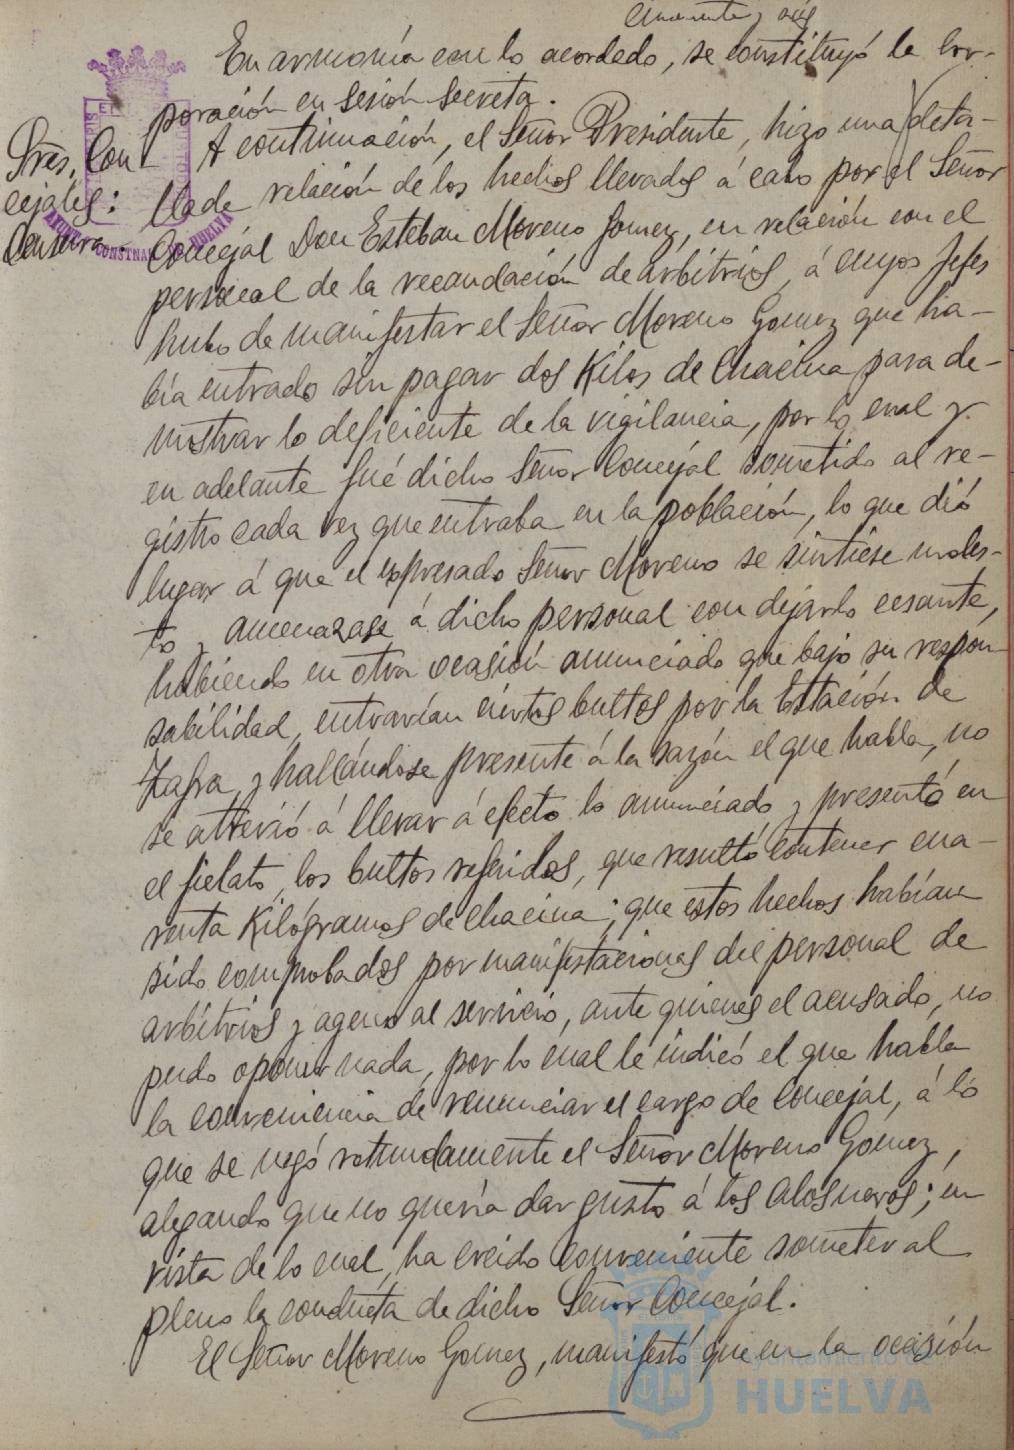 cincuenta y seis
En armonía con lo acordado, se constituyó la Cor-
poración en sesión secreta.
A continuación, el Señor Presidente, hizo una deta-
Sres. Con
cejales:
Censura.
llada relación de los hechos llevados á cabo por el Señor
Concejal Don Esteban Moreno Gomez, en relación con el
personal de la recaudación de arbitrios, á cuyos Jefes
hubo de manifestar el Señor Moreno Gomez que ha-
bía entrado sin pagar dos Kilos de Chacina para de-
mostrar lo deficiente de la vigilancia, por lo cual y
en adelante fué dicho Señor Concejal sometido al re-
gistro cada vez que entraba en la población, lo que dió
lugar á que el expresado Señor Moreno se sintiese moles-
to y amenazase á dicho personal con dejarlo cesante,
habiendo en otra ocasión anunciado que bajo su respon-
sabilidad, entrarían ciertos bultos por la Estación de
Zafra y hallándose presente á la sazón el que habla, no
se atrevió á llevar á efecto lo anunciado y presentó en
el fielato, los bultos referidos, que resultó contener cua-
renta Kilógramos de chacina; que estos hechos habían
sido comprobados por manifestaciones del personal de
arbitrios y ageno al servicio, ante quienes el acusado, no
pudo oponer nada, por lo cual le indicó el que habla
la conveniencia de renunciar el cargo de Concejal, á lo
que se negó rotundamente el Señor Moreno Gomez,
alegando que no quería dar gusto á los alosneros; en
vista de lo cual, ha creido conveniente someter al
pleno la conducta de dicho Señor Concejal.
El Señor Moreno Gomez, manifestó que en la ocasión
Ayuntamiento de
HUELVA